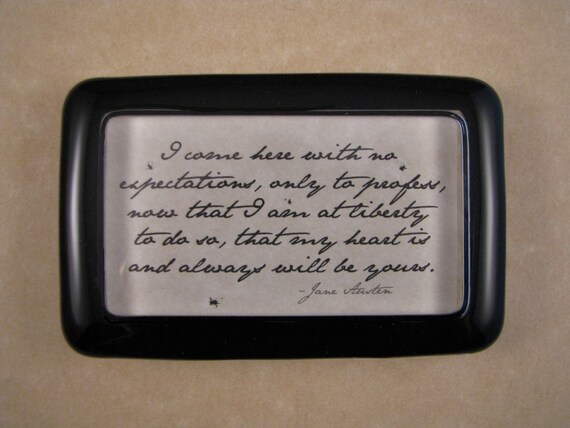 I come here with no
expectations, only to profess,
now that I am at liberty
to do so, that my heart is
and always will be yours.
-Jane Austen